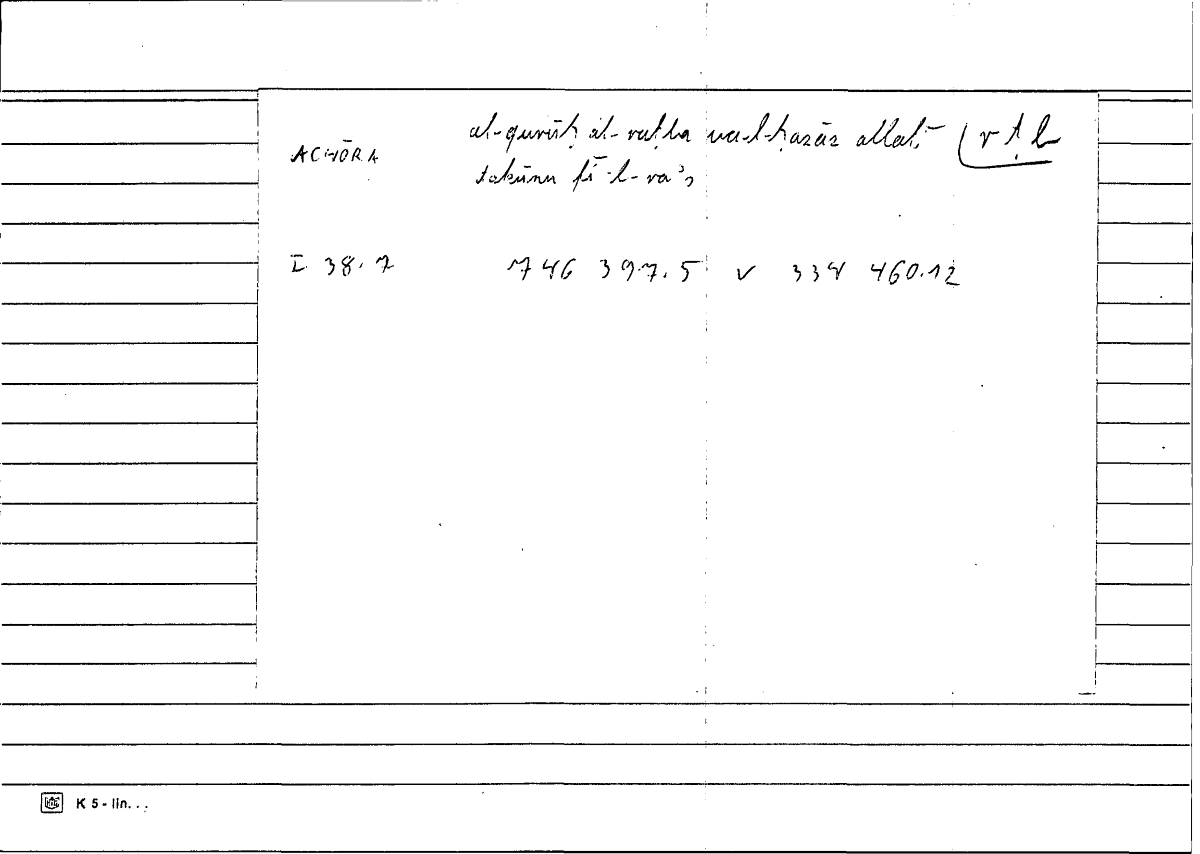 ACHŌRA
al-qurūḥ al-raṭba wa-l-ḥazāz allatī (r ṭ b
takūnu fī-l-ra's
I 38.7 746 397.5 v 334 460.12
K 5 - lin. . .